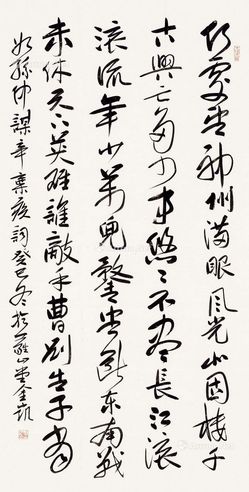 何處望神州滿眼風光北固樓千
古興亡多少事悠々不盡長江滾
滾流年少萬兜鍪坐斷東南戰
未休天下英雄誰敵手曹劉生子當
如孫仲謀辛棄疾詞癸巳冬於山堂凱